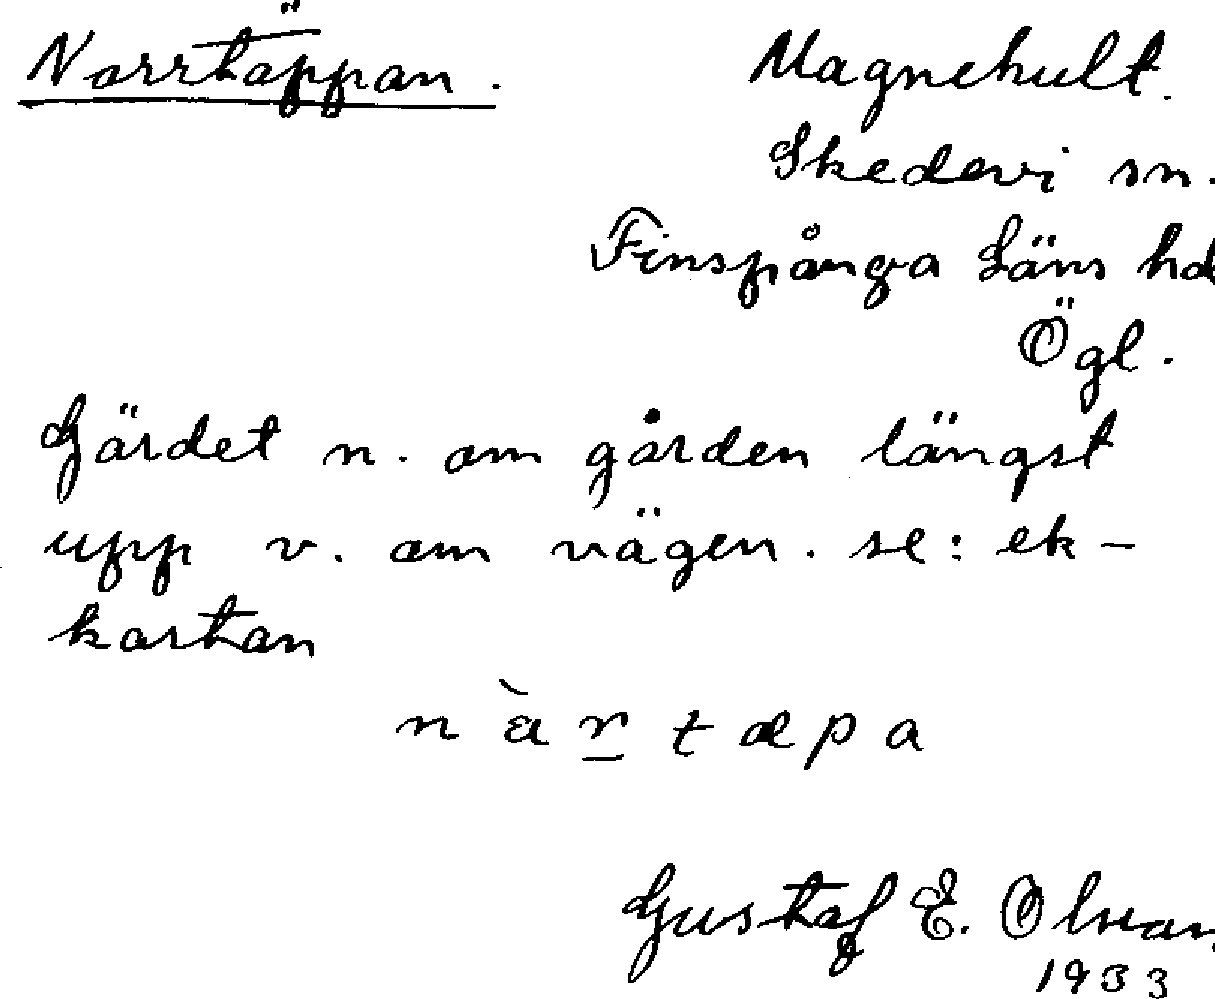 Norrtäppan.
Magnehult.
Skedevi sn.
Finspånga Läns hd
Ögl.
Gärdet n. om gården längst
upp v. om vägen. se: ek-
kartan
n à̱ ṟ t æ p a
Gustaf E.
1933